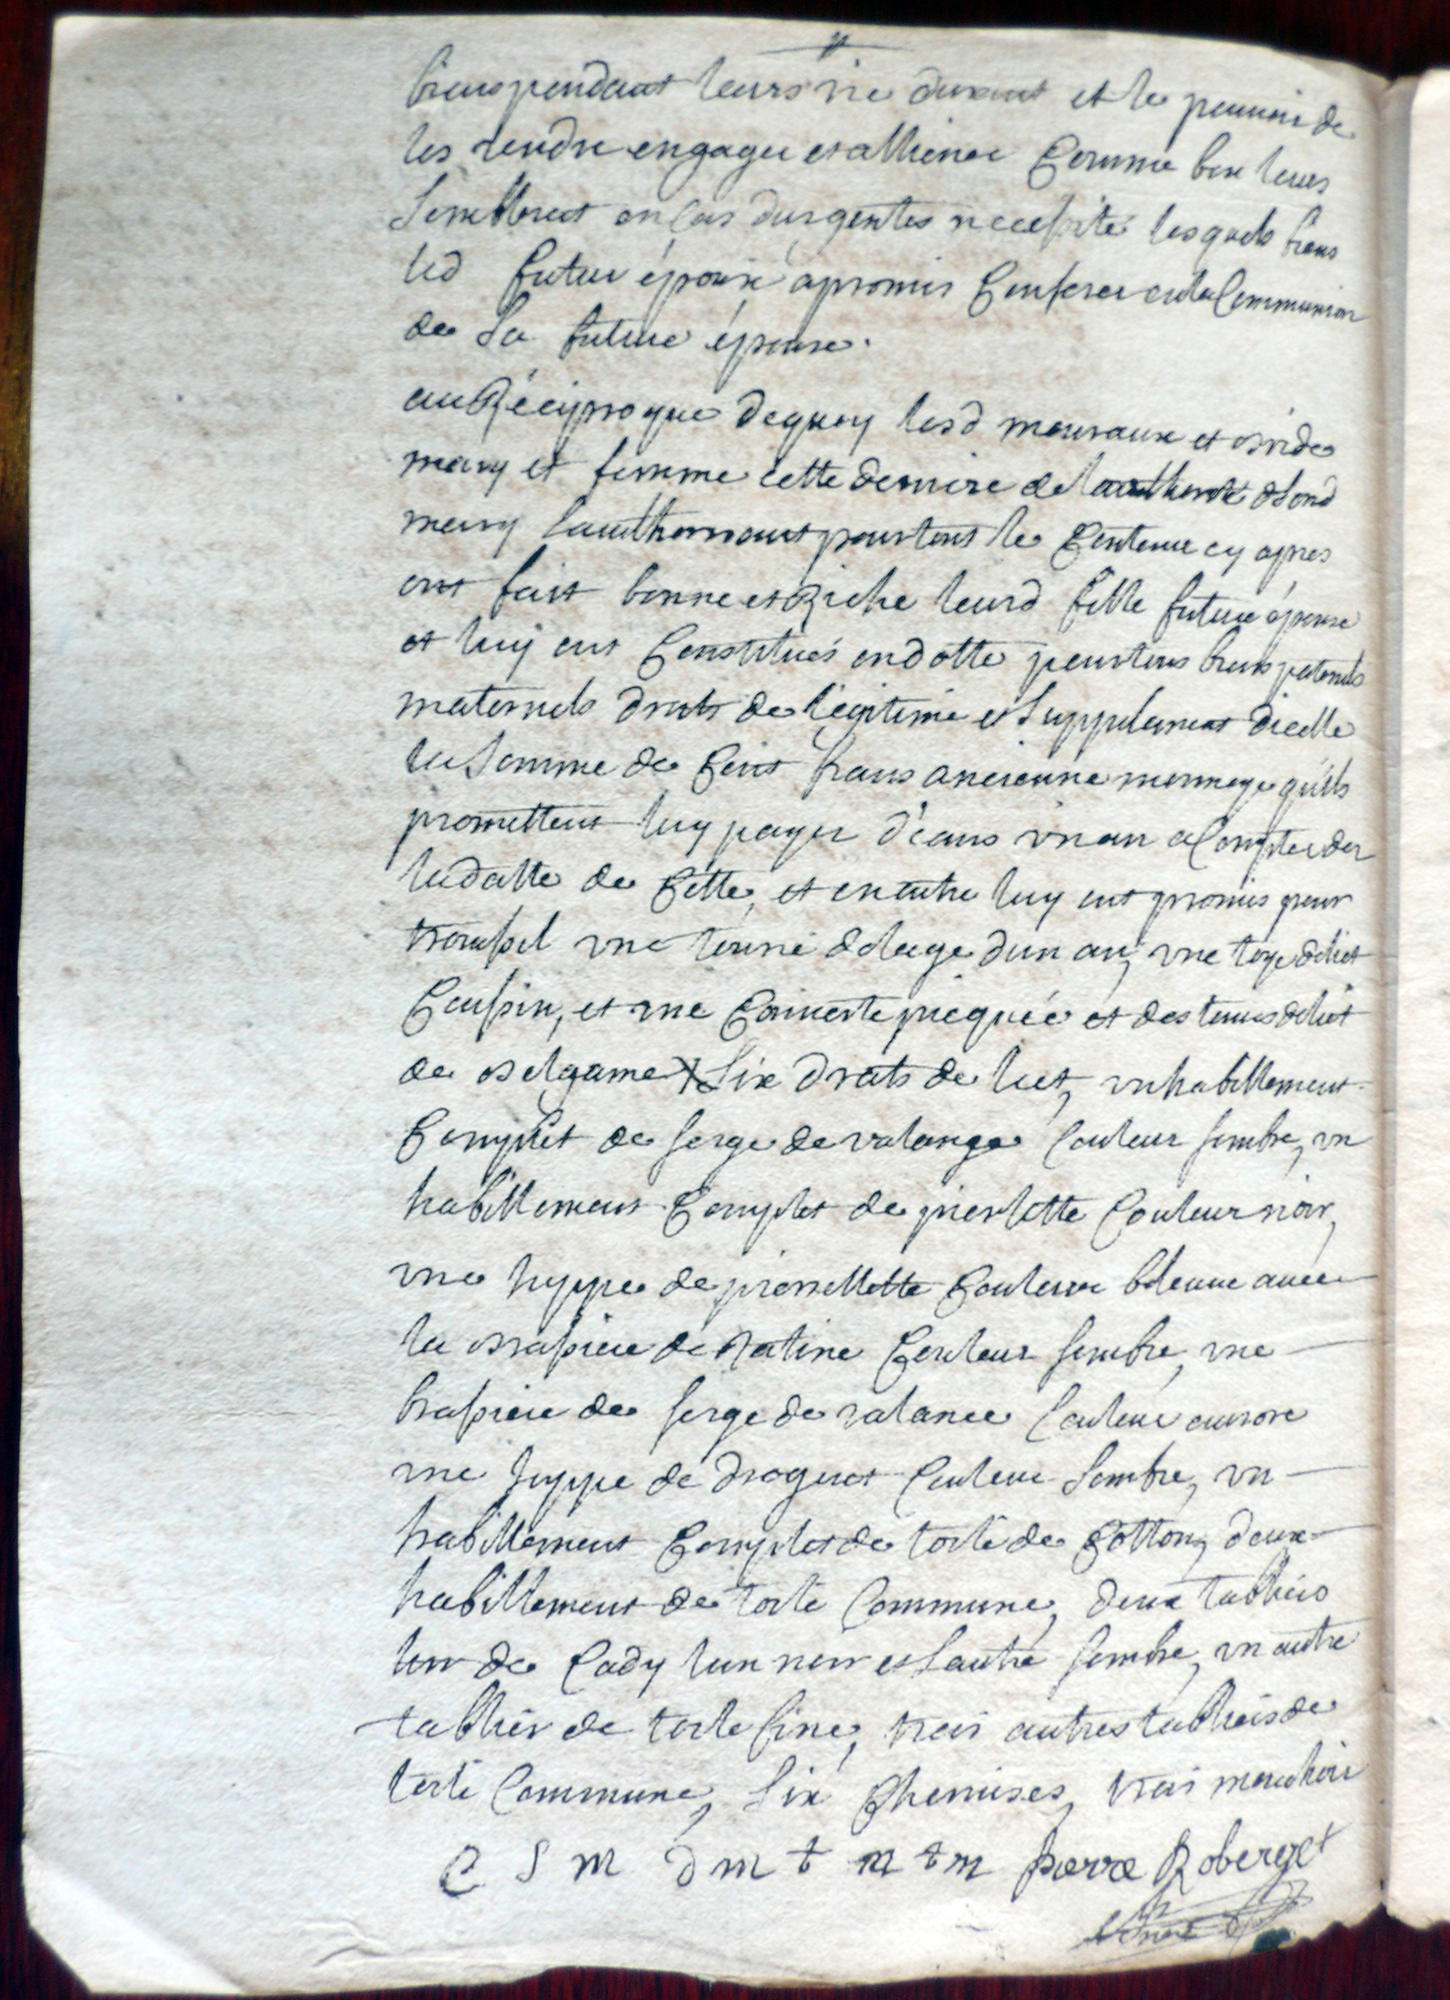 biens pendant leurs vie durant et le pouvoir de
les vendre engager et alliener Comme bon leurs
Semblerat en Cas durgentes necessité lesquels biens
led futur époux a promis Conferer en la Communion
de Sa future épouse.
au Réciproque dequoy lesd mouraux et
mary et femme cette derniere de lauthorité de Sond
mary lauthorisant pour tout le Contenu cy apres
ont fait bonne et Riche leurd fille future épouse
et luy ont Constitués en dotte pour tous biens paternels
maternels droits de légitime et Supplement dicelle
la Somme de Cent francs ancienne monnoye quils
promettent luy payer d'icans un an a Compter de
la datte de Cette, et en outre luy ont promis pour
troussel une de lage dun an, une toye de liet
Coussin, et une Couverte picquée et des tours de liet
de Six drats de liet, un habillement
Complet de serge de valange Couleur sombre, un
habillement Complet de Couleur noir,
une juppe de Couleur bleuue avec
la brassiere de Ratine Couleur sombre, une
brassiere de serge de valance Couleur aurore
une juppe de droguet Couleur Sombre, un
habillement Complet de toile de Cotton, deux
habillement de toile Commune, deux tabliers
lun de Cady lun noir et Lautre sombre, un autre
tablier de toile fine, trois autres tabliers de
toile Commune, Six Chemises, trois mouchoir
C S M D m t m t m pierre Roberget